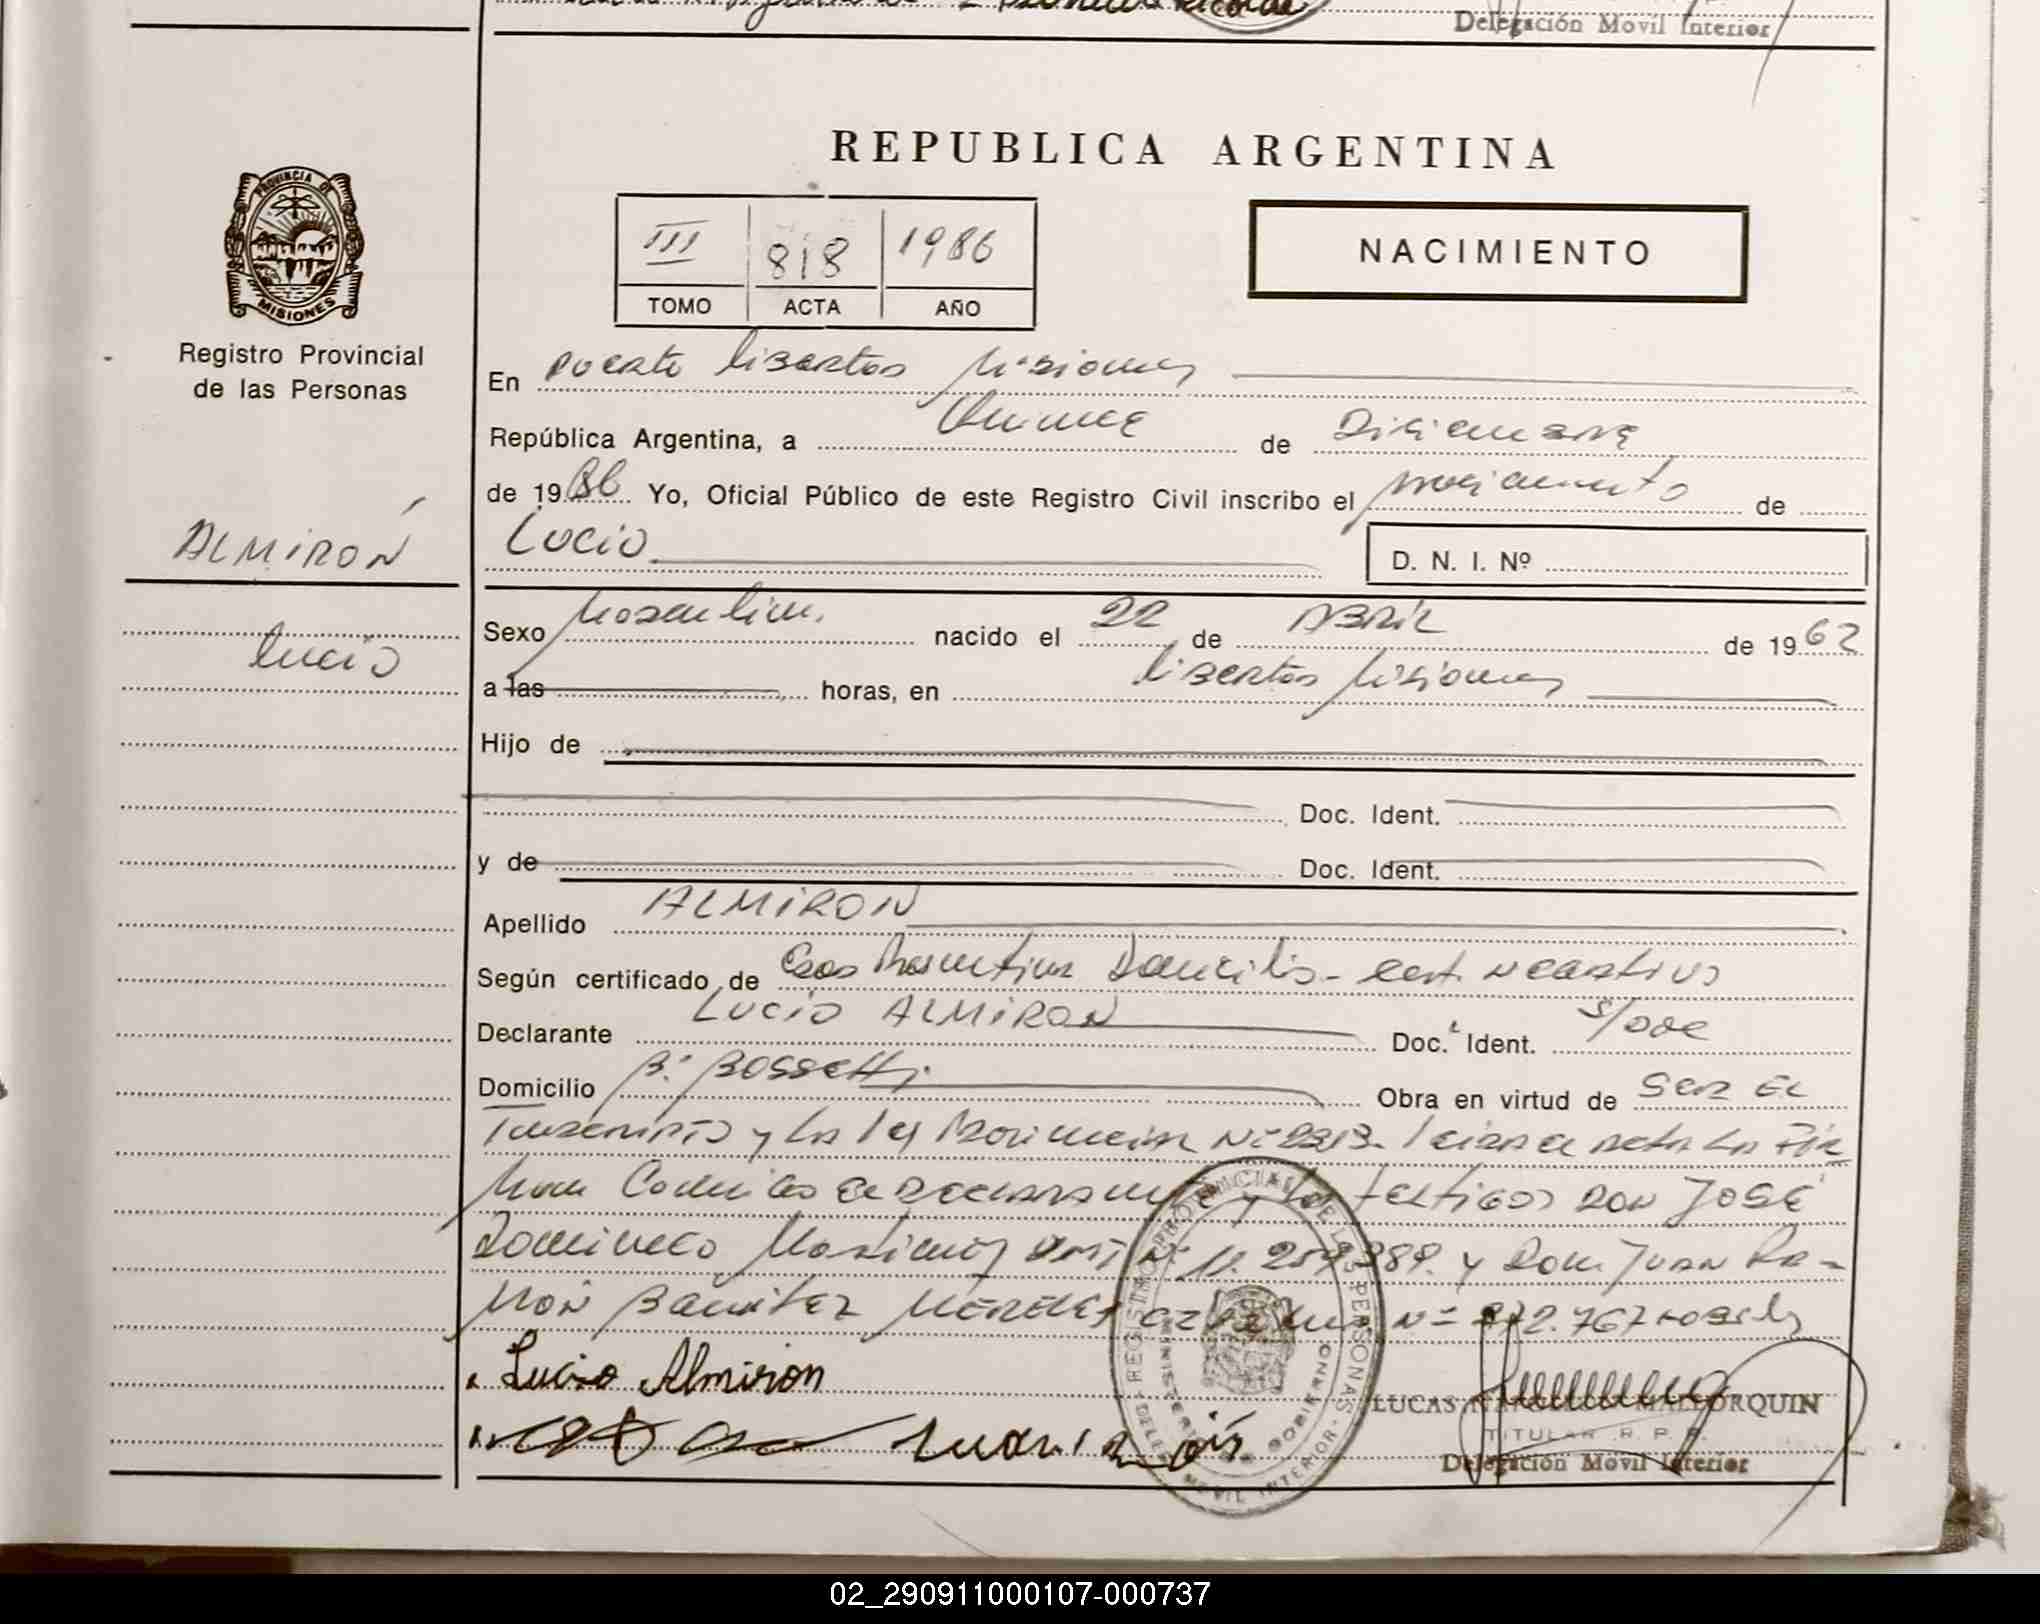 Delegación Movil Interior
REPUBLICA ARGENTINA
PROVINCIA DE
MISIONES
Registro Provincial
de las Personas
III 818 1986
TOMO ACTA AÑO
NACIMIENTO
En Puerto Libertad Misiones
República Argentina, a Quince de Diciembre
de 1986 Yo, Oficial Público de este Registro Civil inscribo el nacimiento de
ALMIRÓN
Lucio
Lucio
D. N. I. Nº
Sexo Masculino nacido el 22 de ABRIL de 1962
a las horas, en Libertad Misiones
Hijo de
Doc. Ident.
y de Doc. Ident.
Apellido ALMIRON
Según certificado de Domicilio - cert. negativo
Declarante LUCIO ALMIRON Doc. Ident. s/doc
Domicilio Bº Bossetti Obra en virtud de SER EL
Inscripto y la ley Nº Leida el acta la fir
man el declarante y los testigos DON JOSÉ
Domingo Martinez Nº y Don Juan RA-
MÓN Benitez MERELES Nº
Lucio Almiron
REGISTRO PROVINCIAL DE LAS PERSONAS
MINISTERIO DE GOBIERNO
DELEG. MOVIL INTERIOR
LUCAS MALLORQUIN
TITULAR R. P. P.
Delegación Movil Interior
02_290911000107-000737